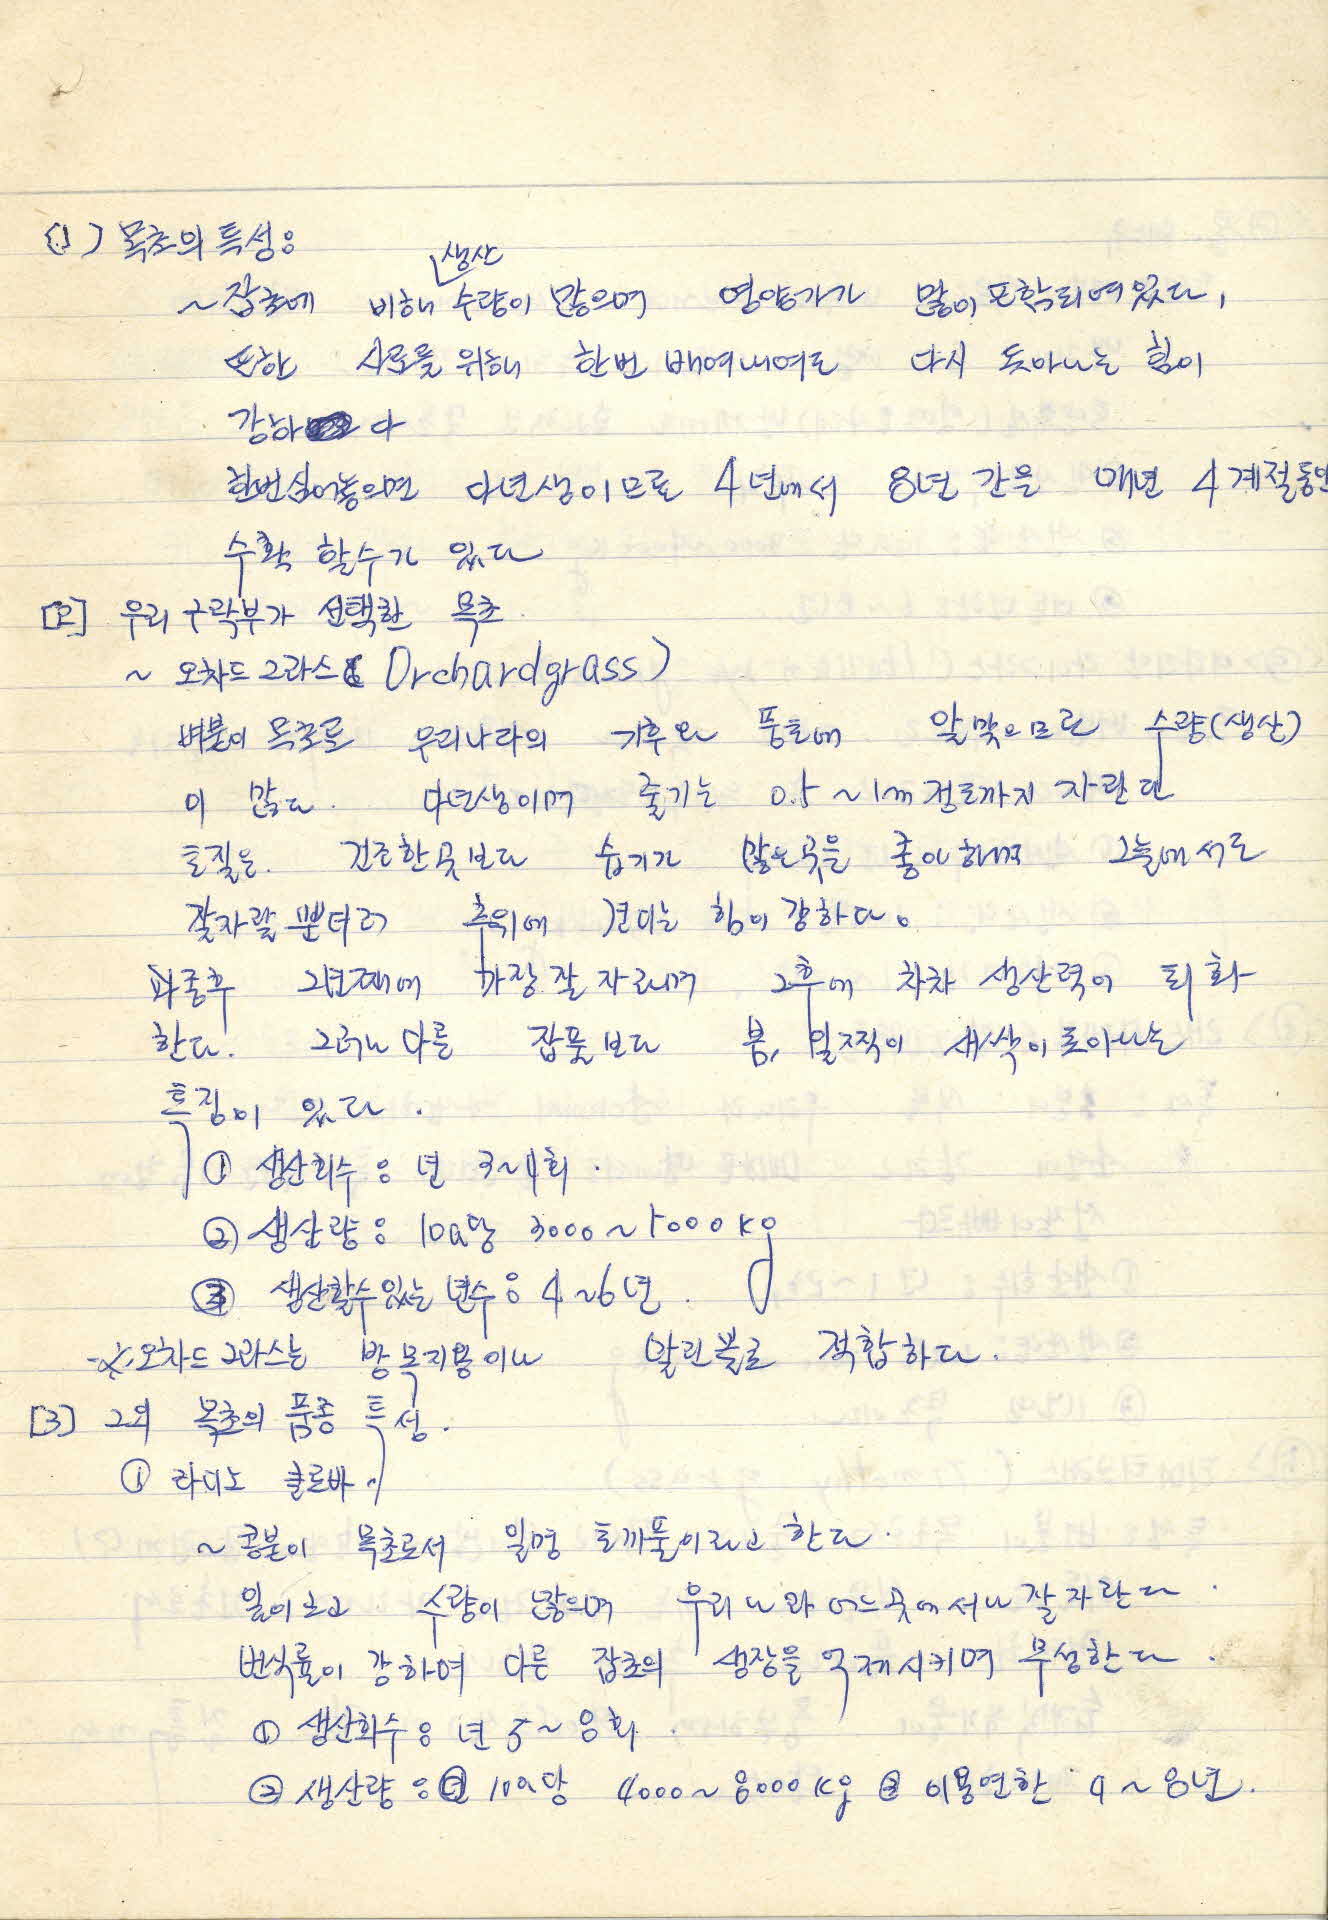 (1) 목초의 특성:
생산
~ 잡초에 비해 수량이 많으며 영양가가 많이 포함되여있다,
또한 사료를 위해 한번 배여내여도 다시 돋아나는 힘이
강하다
한번심어놓으면 다년생이므로 4년에서 8년 간을 매년 4계절동안
수확 할수가 있다
[2] 우리 구락부가 선택한 목초
~ 오차드그라스( Orchardgrass)
벼분이 목초로 우리나라의 기후와 풍토에 알맞으므로 수량(생산)
이 많다. 다년생이며 줄기는 0.5 ~ 1m 정도까지 자란다
토질은. 건조한곳보다 습기가 많은곳을 좋아하며 그늘에서도
잘자랄뿐더러 추위에 견디는 힘이 강하다.
파종후 2년째에 가장잘 자라며 그후에 차차 생산력이 퇴화
한다. 그러나 다른 잡풀보다 봄, 일찍이 새싹이 토아나는
특징이 있다.
① 생산회수: 년 3~4회.
② 생산량: 10a당 3000~5000kg
③ 생산할수있는 년수: 4~6년.
※오차드그라스는 방목지용이나 말린풀로 적합하다.
[3] 그외 목초의 품종 특성.
① 라디노 클로바
~ 콩분이 목초로서 일명 토끼풀이라고 한다.
잎이크고 수량이 많으며 우리나라 어느곳에서나 잘자란다.
번식률이 강하며 다른 잡초의 생장을 억제시키며 무성한다.
① 생산회수: 년 5~8회.
② 생산량: 10a당 4000~8000kg ③ 이용연한 4~8년.